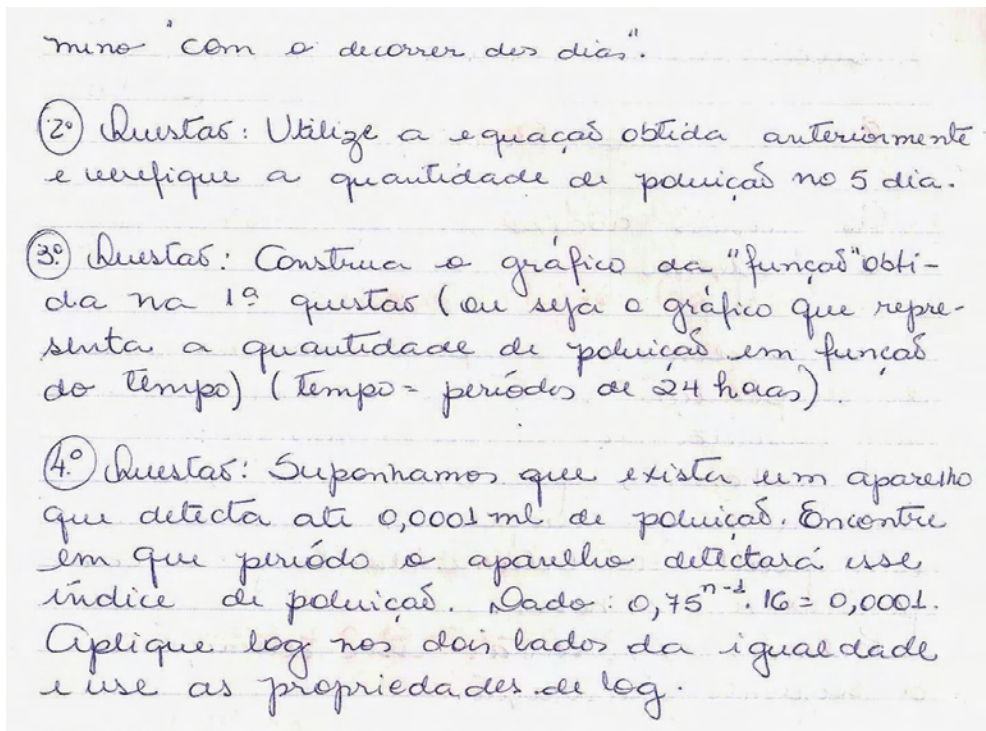 mino "com o decorrer dos dias".
2º Questão: Utilize a equação obtida anteriormente
e verifique a quantidade de poluição no 5 dia.
3º Questão: Construa o gráfico da "função" obti-
da na 1ª questão (ou seja o gráfico que repre-
senta a quantidade de poluição em função
do tempo) (tempo = períodos de 24 horas).
4º Questão: Suponhamos que exista um aparelho
que detecta até 0,0001 ml de poluição. Encontre
em que período o aparelho detectará esse
índice de poluição. Dado: 0,75ⁿ⁻¹. 16 = 0,0001.
Aplique log nos dois lados da igualdade
e use as propriedades de log.